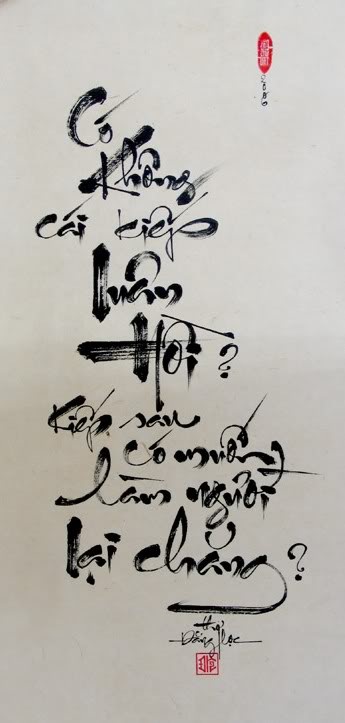 2006
Có
Không
cái kiếp
luân
Hồi?
Kiếp sau
có muốn
làm người
lại chăng?